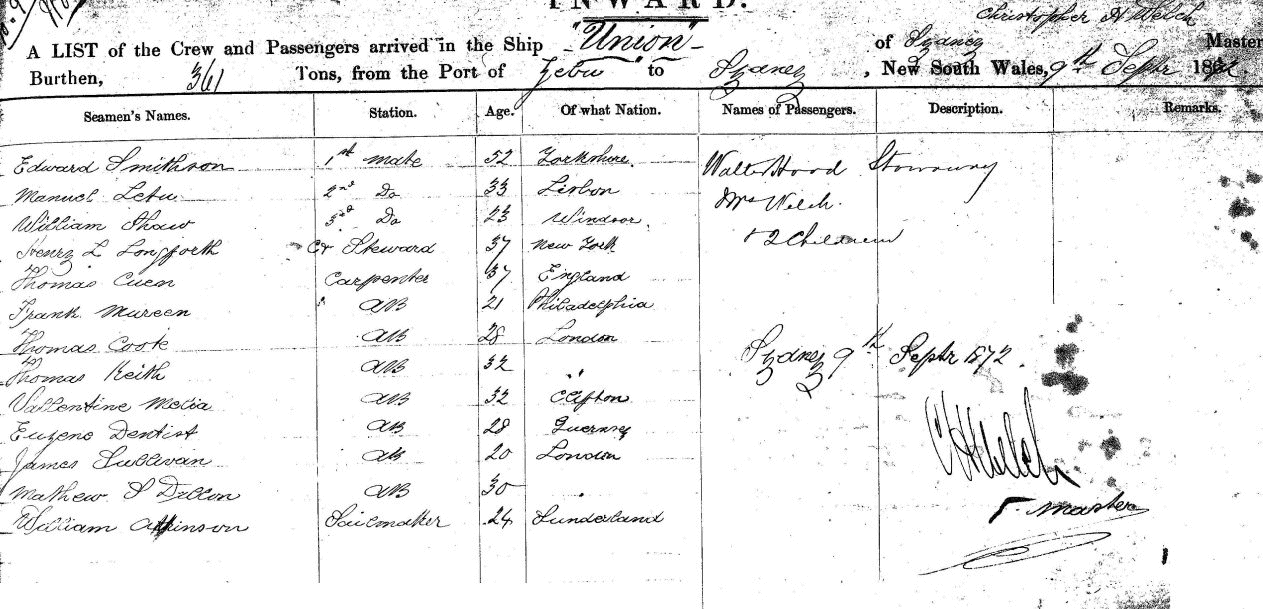 INWARD.
Christopher H Welch
A LIST of the Crew and Passengers arrived in the Ship "Union" of Sydney Master
Burthen, 361 Tons, from the Port of Zebu to Sydney, New South Wales, 9th Septr 1872
Seamen's Names. Station. Age. Of what Nation. Names of Passengers. Description. Remarks.
Edward Smithson 1st mate 52 Yorkshire. Walter Hood Stowaway
Manuel 2nd Do 33 Lisbon Mrs Welch.
William Shaw 3rd Do 23 Windsor. + 2 Children
Henry L Longforth Steward 37 New York
Thomas Cuen Carpenter 37 England
Frank Mureen AB 21 Philadelphia
Thomas Cook AB 28 London
Thomas Keith AB 32 "
Sydney 9th Septr 1872.
Vallentine Melia AB 32 Clifton
Eugene Dentist AB 28 Guernsey
James Sullivan AB 20 London
C H Welch
Mathew S Dillon AB 30 "
Master
William Atkinson Sailmaker 24 Sunderland